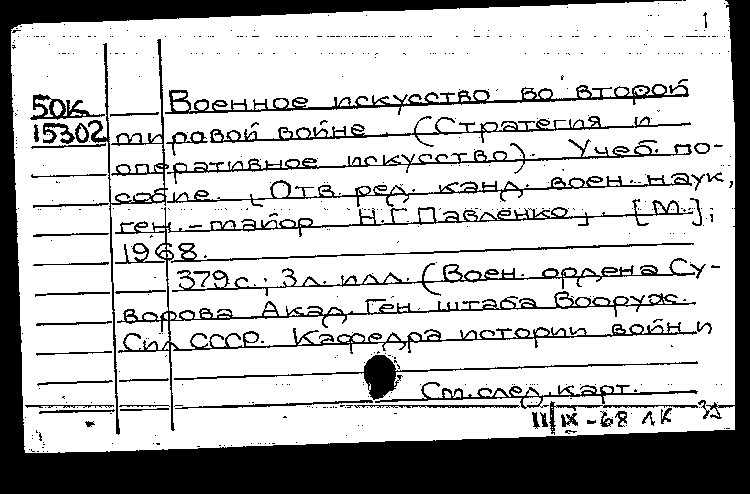 1
50К Военное искусство во второй
15302 мировой войне. (Стратегия и
оперативное искусство). Учеб. по-
собие. [Отв. ред. канд. воен. наук,
ген.-майор Н.Г. Павленко]. [М.],
1968.
379с.; 3л. илл. (Воен. ордена Су-
ворова Акад. Ген. штаба Вооруж.
Сил СССР. Кафедра истории войн и
См. след. карт.
II/IX-68 ЛК